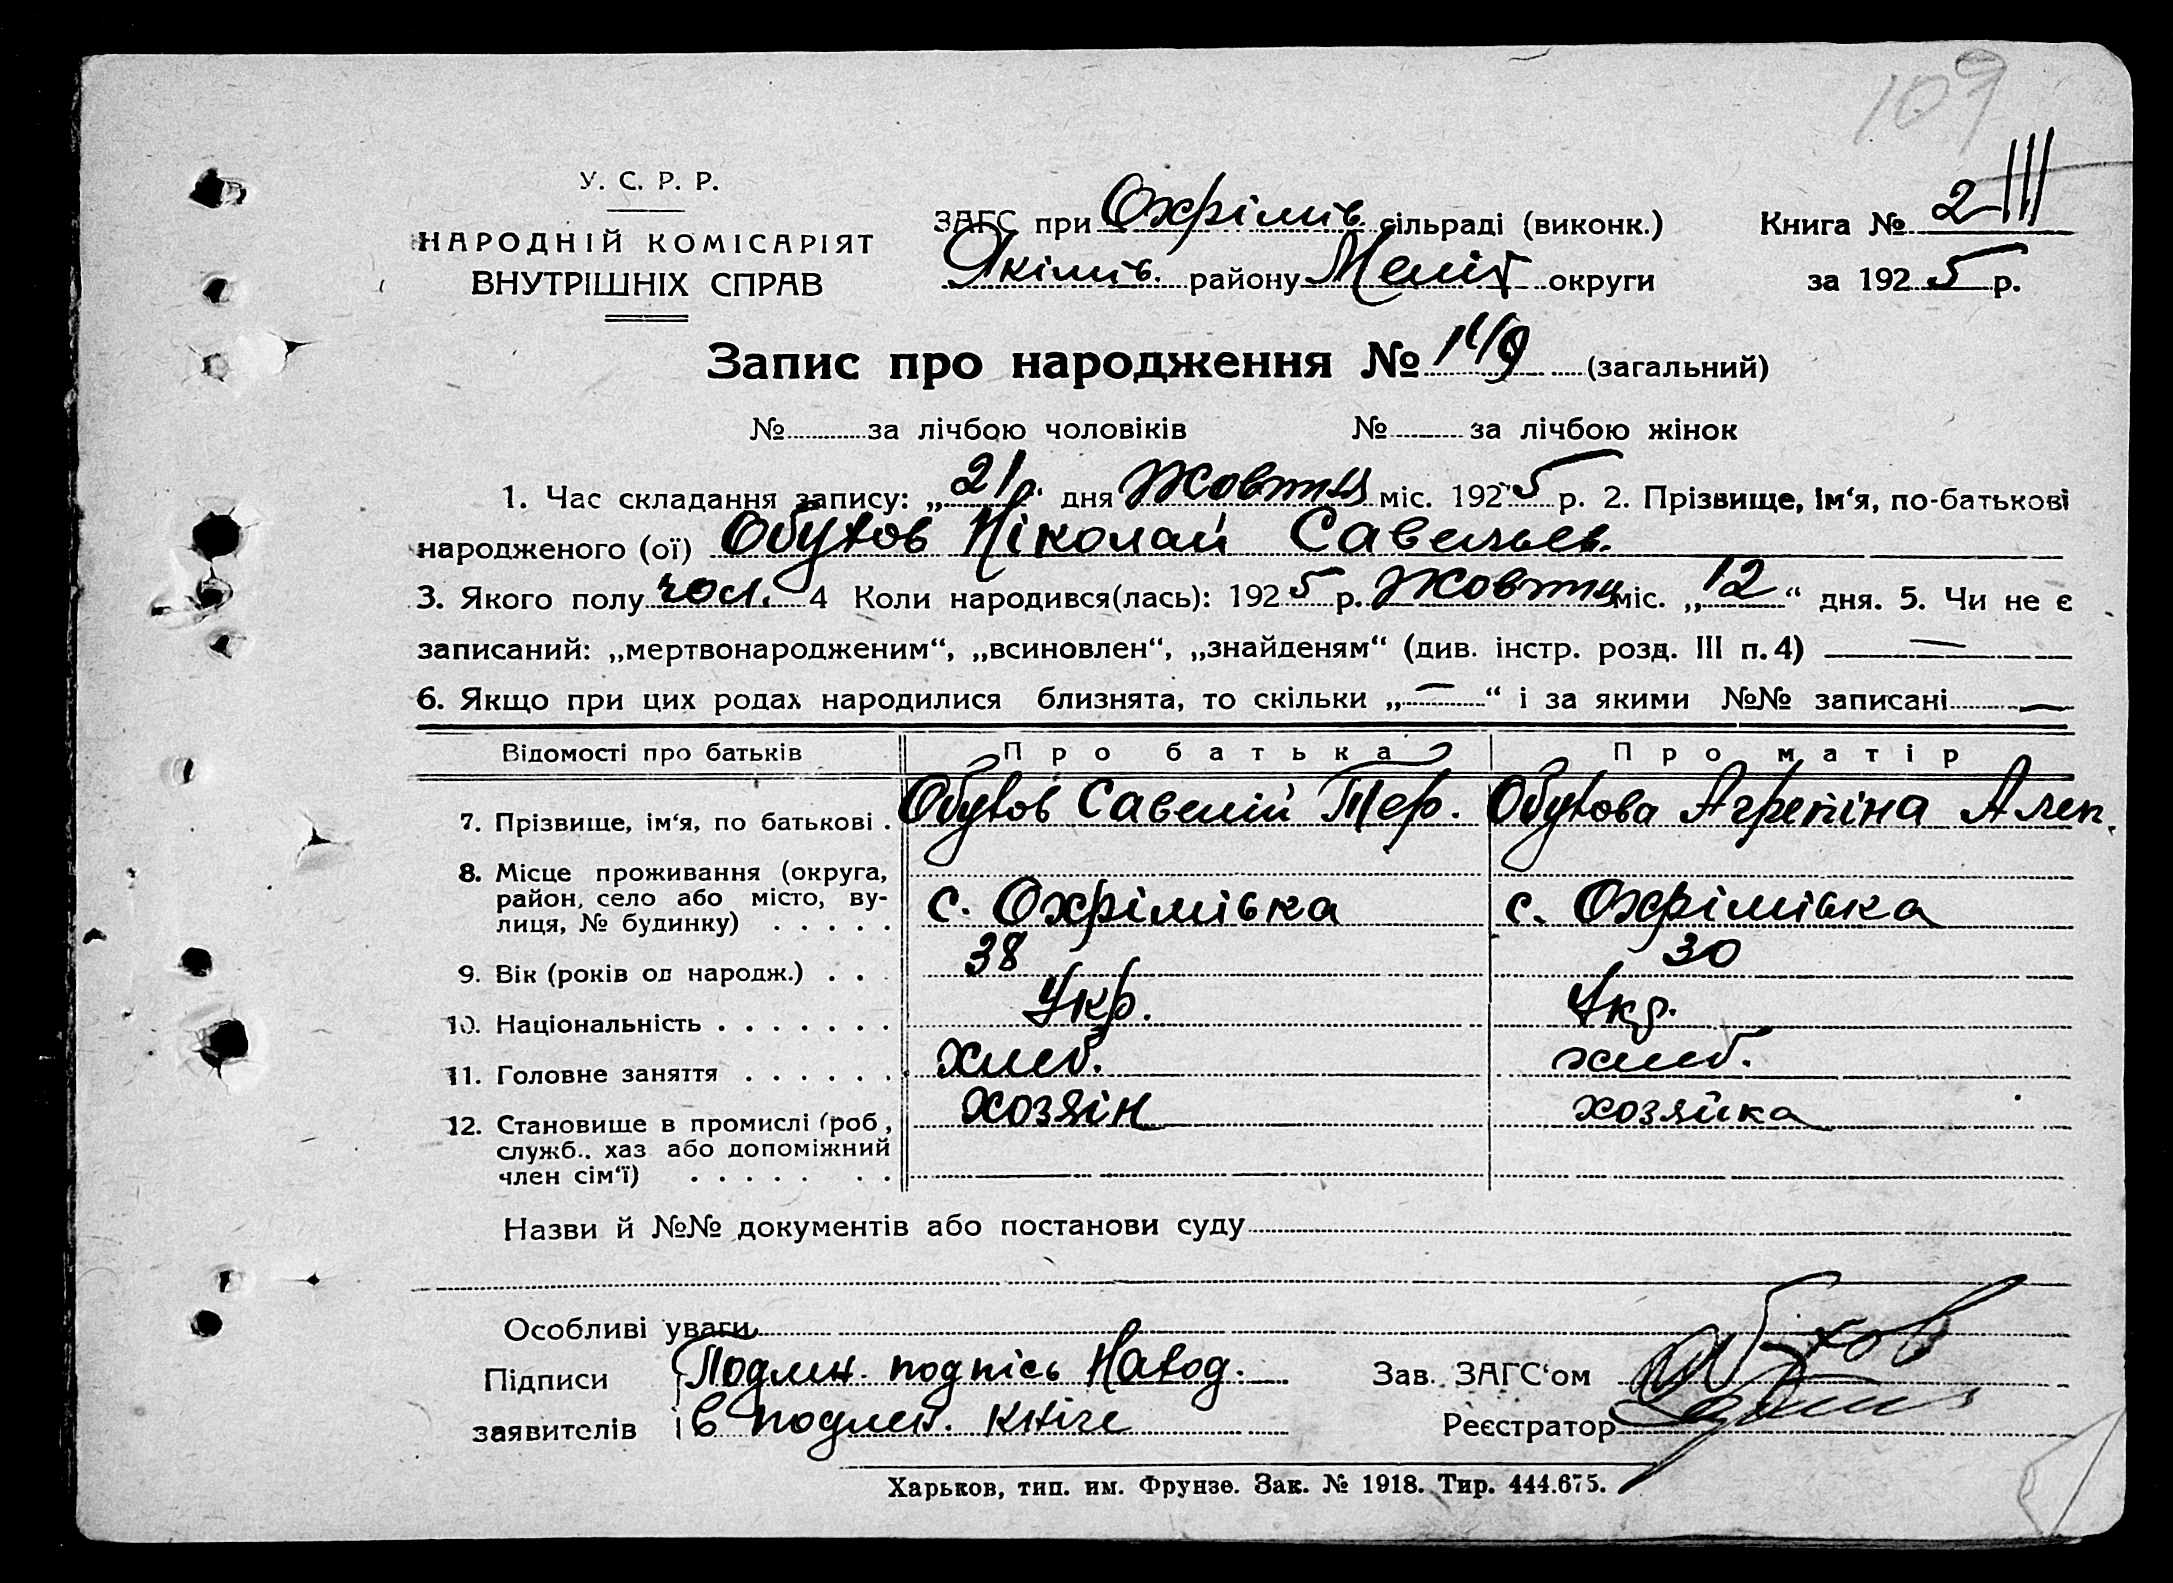 109
У. С. Р. Р.
НАРОДНІЙ КОМІСАРІЯТ
ВНУТРІШНІХ СПРАВ
ЗАГС при Охрімів. сільраді (виконк.) Книга № 2 III
Якімів. району Меліт округи за 1925 р.
Запис про народження № 149 (загальний)
№ за лічбою чоловіків № за лічбою жінок
1. Час складання запису: „21“ дня Жовтц міс. 1925 р. 2. Прізвище, ім‘я, по-батькові
народженого (ої) Обухов Ніколай Савельев.
3. Якого полу чол. 4 Коли народився(лась): 1925 р. Жовтц міс. „12“ дня. 5. Чи не є
записаний: „мертвонародженим“, „всиновлен“, „знайденям“ (див. інстр. розд. III п. 4) —
6. Якщо при цих родах народилися близнята, то скільки „—“ і за якими №№ записані —
Відомості про батьків Про батька Про матір
7. Прізвище, ім‘я, по батькові . Обухов Савелій Тер. Обухова Агрепіна Алек.
8. Місце проживання (округа,
район, село або місто, ву-
лиця, № будинку) . . . . . с. Охрімівка с. Охрімівка
9. Вік (років од народж.) . . . 38 30
10. Національність . . . . . . . Укр. Укр.
11. Головне заняття . . . . . . хлеб. хлеб.
12. Становище в промислі (роб., хозяін хозяйка
служб., хаз або допоміжний
член сім‘ї) . . . . . . .
Назви й №№ документів або постанови суду
Особливі уваги
Підписи Подлин. подпісь Наход. Зав. ЗАГС‘ом
заявителів в подлен. кніге Реєстратор
Харьков, тип. им. Фрунзе. Зак. № 1918. Тир. 444.675.